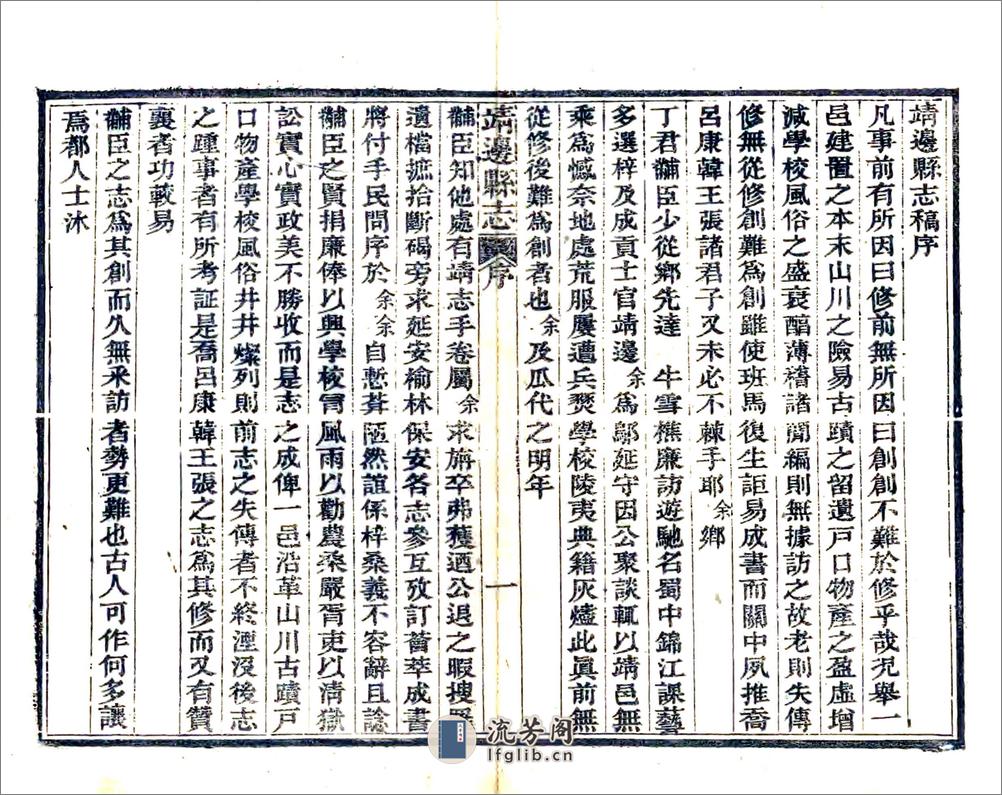 靖邊縣志稿序
凡事前有所因曰修前無所因曰創創不難於修乎哉況舉一
邑建置之本末山川之險易古蹟之留遺戸口物產之盈虛增
減學校風俗之盛衰醕薄稽諸聞編則無據訪之故老則失傳
修無從修創難爲創雖使班馬復生詎易成書而關中夙推喬
呂康韓王張諸君子又未必不棘手耶余鄉
丁君黼臣少從鄉先達 牛雪樵廉訪遊馳名蜀中錦江課藝
多選梓及成貢士官靖邊余爲鄜延守因公聚談輒以靖邑無
乘爲憾奈地處荒服屢遭兵燹學校陵夷典籍灰燼此眞前無
從修後難爲創者也余及瓜代之明年
靖邊縣志稿 序 一
黼臣知他處有靖志手卷屬余求旃卒弗獲迺公退之暇搜羅
遺檔摭拾斷碣旁求延安榆林保安各志參互攷訂薈萃成書
將付手民問序於余余自慙葑陋然誼係梓桑義不容辭且諗
黼臣之賢捐廉俸以興學校冐風雨以勸農桑嚴胥吏以清獄
訟實心實政美不勝收而是志之成俾一邑沿革山川古蹟戸
口物產學校風俗井井燦列則前志之失傳者不終湮沒後志
之踵事者有所考証是喬呂康韓王張之志爲其修而又有贊
襄者功較易
黼臣之志爲其創而久無釆訪者勢更難也古人可作何多讓
焉都人士沐
流芳阁
lfglib.cn